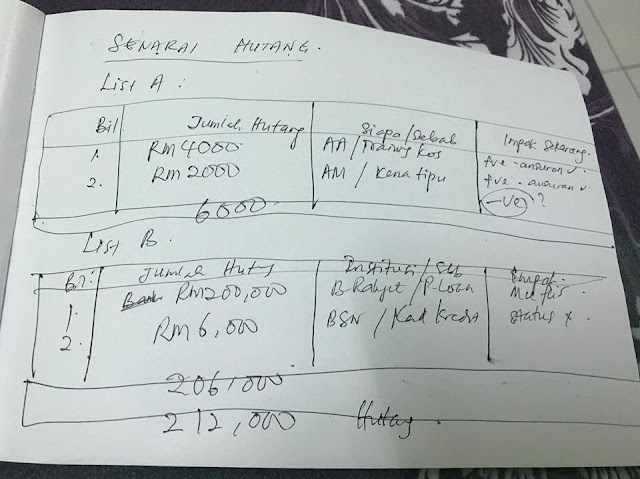 SENARAI HUTANG.
LIST A :
Bil Jumlah Hutang Siapa/Sebab Impak Sekarang.
1. RM 4000 AA / kos
2. RM 2000 AM / Kena tipu +ve - ansuran ✓
+ve - ansuran ✓
6000 -ve ?
LIST B.
Bil Jumlah Hutg Institusi / Seb Impak.
1. RM 200,000 B Rakyat / P-Loan Muflis.
2. RM 6,000 BSN / Kad Kredit Status x.
206,000
212,000 Hutang.